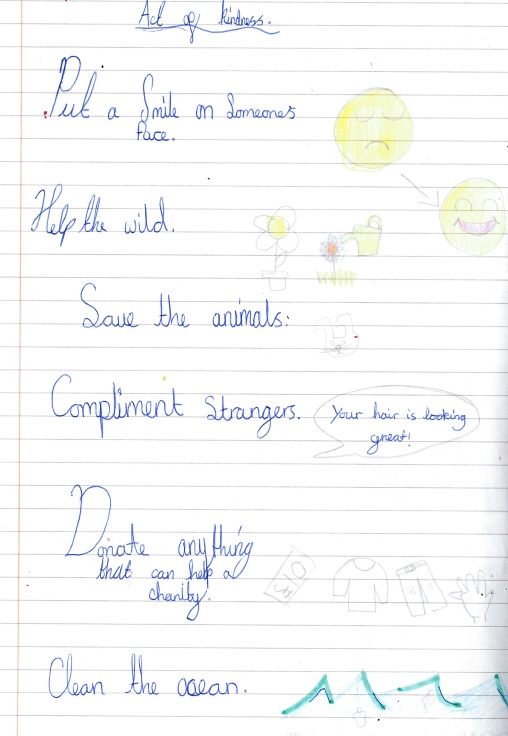 Act of kindness.
Put a Smile on Someones
face.
Help the wild.
Save the animals:
Compliment Strangers.
Your hair is looking
great!
Donate anything
that can help a
charity.
Clean the ocean.